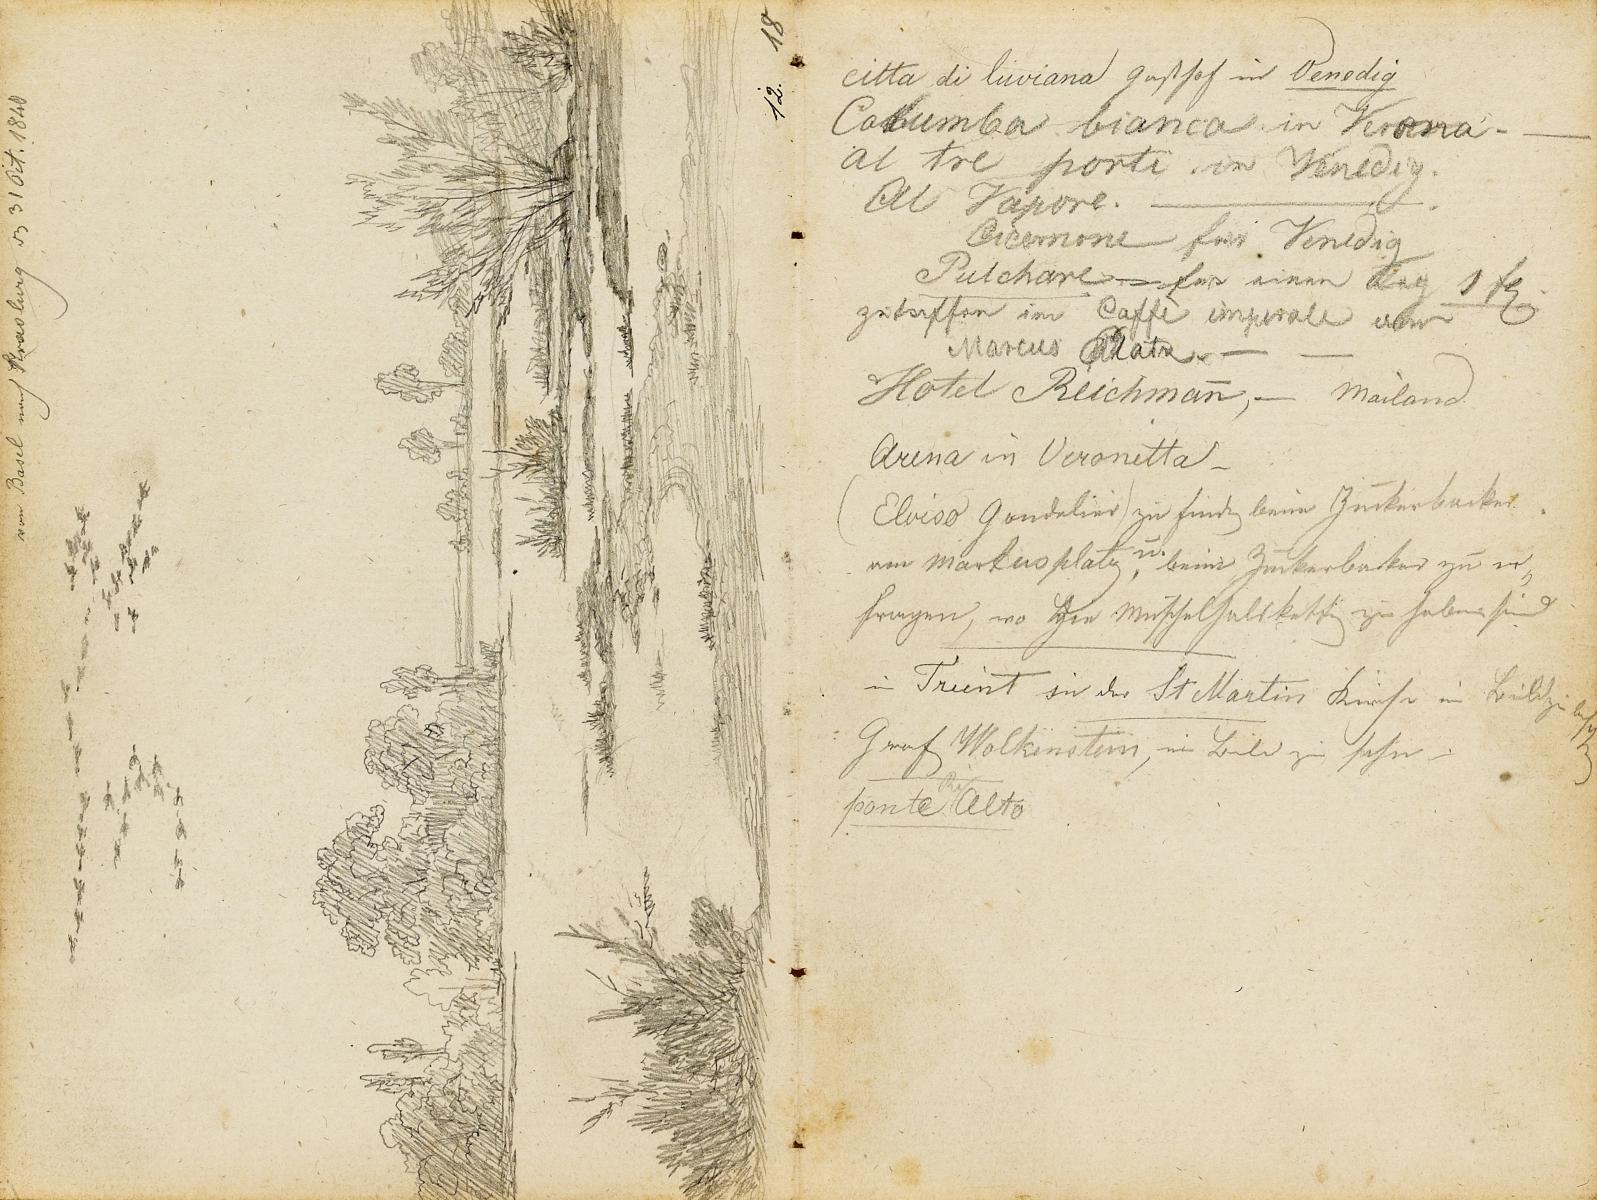 von Basel nach Strasburg d 31 Oct. 1840
18
12.
citta di luviana Gasthof in Venedig
Columba bianca in Verona -
al tre porti in Venedig.
Al Vapore.
Cicerone für Venedig
Pulchare für einen Tag 1 fl
zu treffen im Caffè imperale am
Marcus Platz.
Hotel Reichmañ, — Mailand
Arena in Veronetta
(Eloiso Gondelier) zu finden beim Zuckerbacker
am Markusplatz, u. beim Zuckerbacker zu er-
fragen, wo die Muschelhalsketten zu haben sind
in Trient in der St Martin Kirche ein Bild zu
Graf Wolkenstein, ein Bild zu sehn
ponte Alto